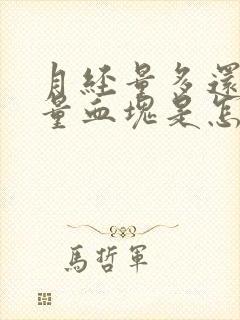 月经量多還
量血塊是怎
馬哲軍